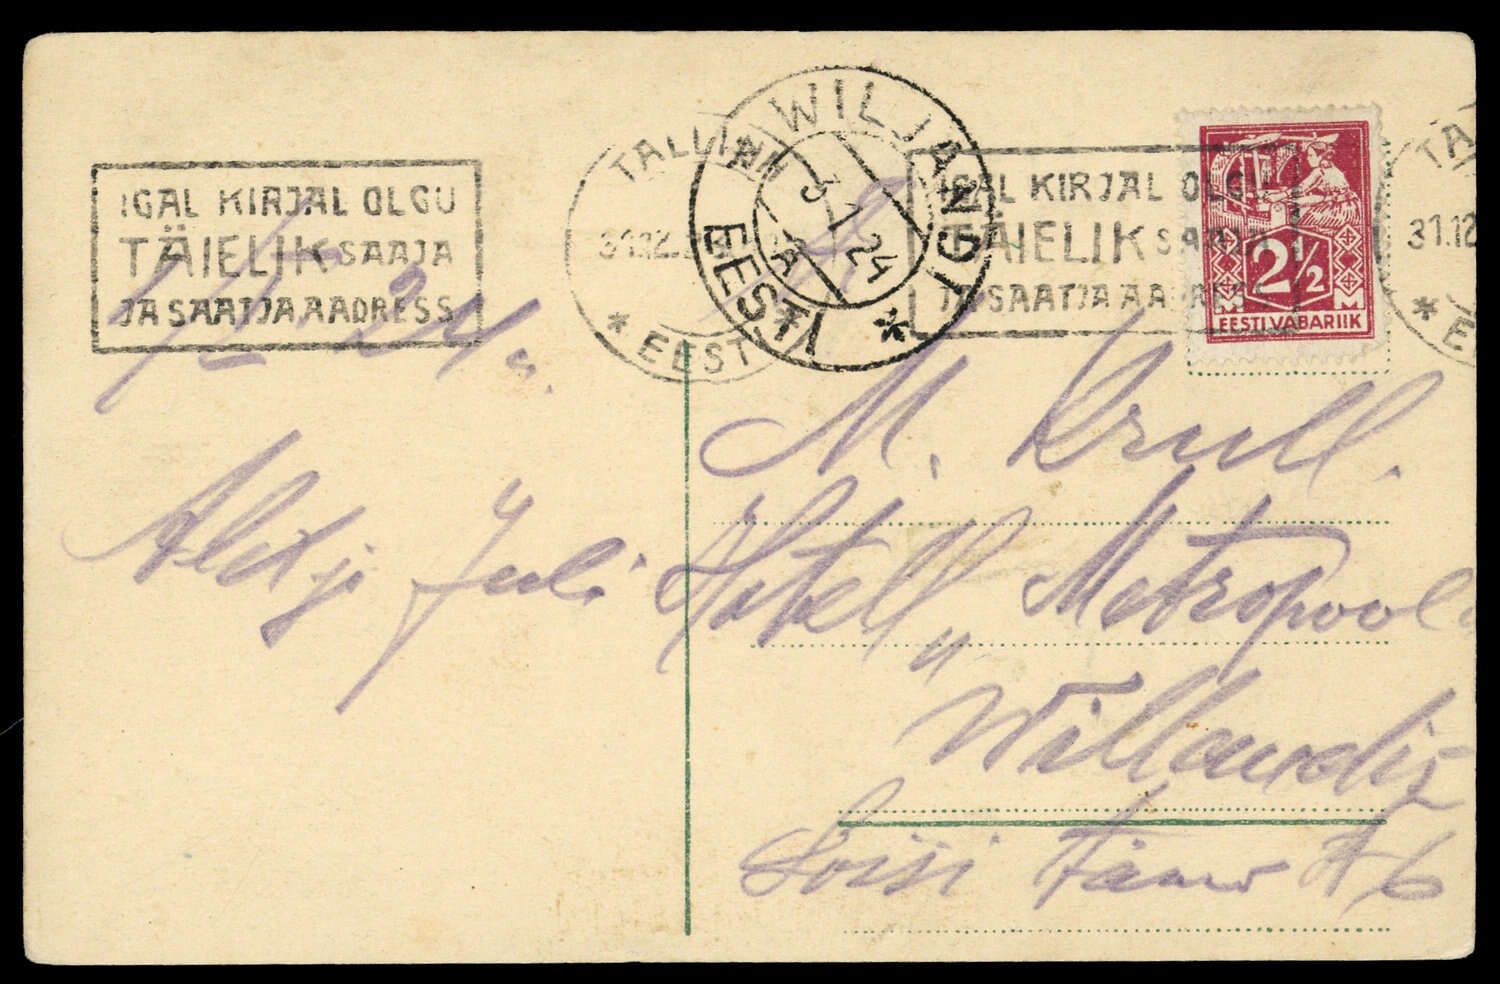 IGAL KIRJAL OLGU
TÄIELIK SAAJA
JA SAATJA AADRESS
TALLINN
31.12.
EESTI
WILJANDI
3 1 24
A
EESTI
IGAL KIRJAL OLGU
TÄIELIK SAAJA
JA SAATJA AADRESS
2½
EESTI VABARIIK
TA
31.12
E
1/I - 24 a.
M. Krull.
Juli
Hotell „Metropool
Willandis
Lossi 6